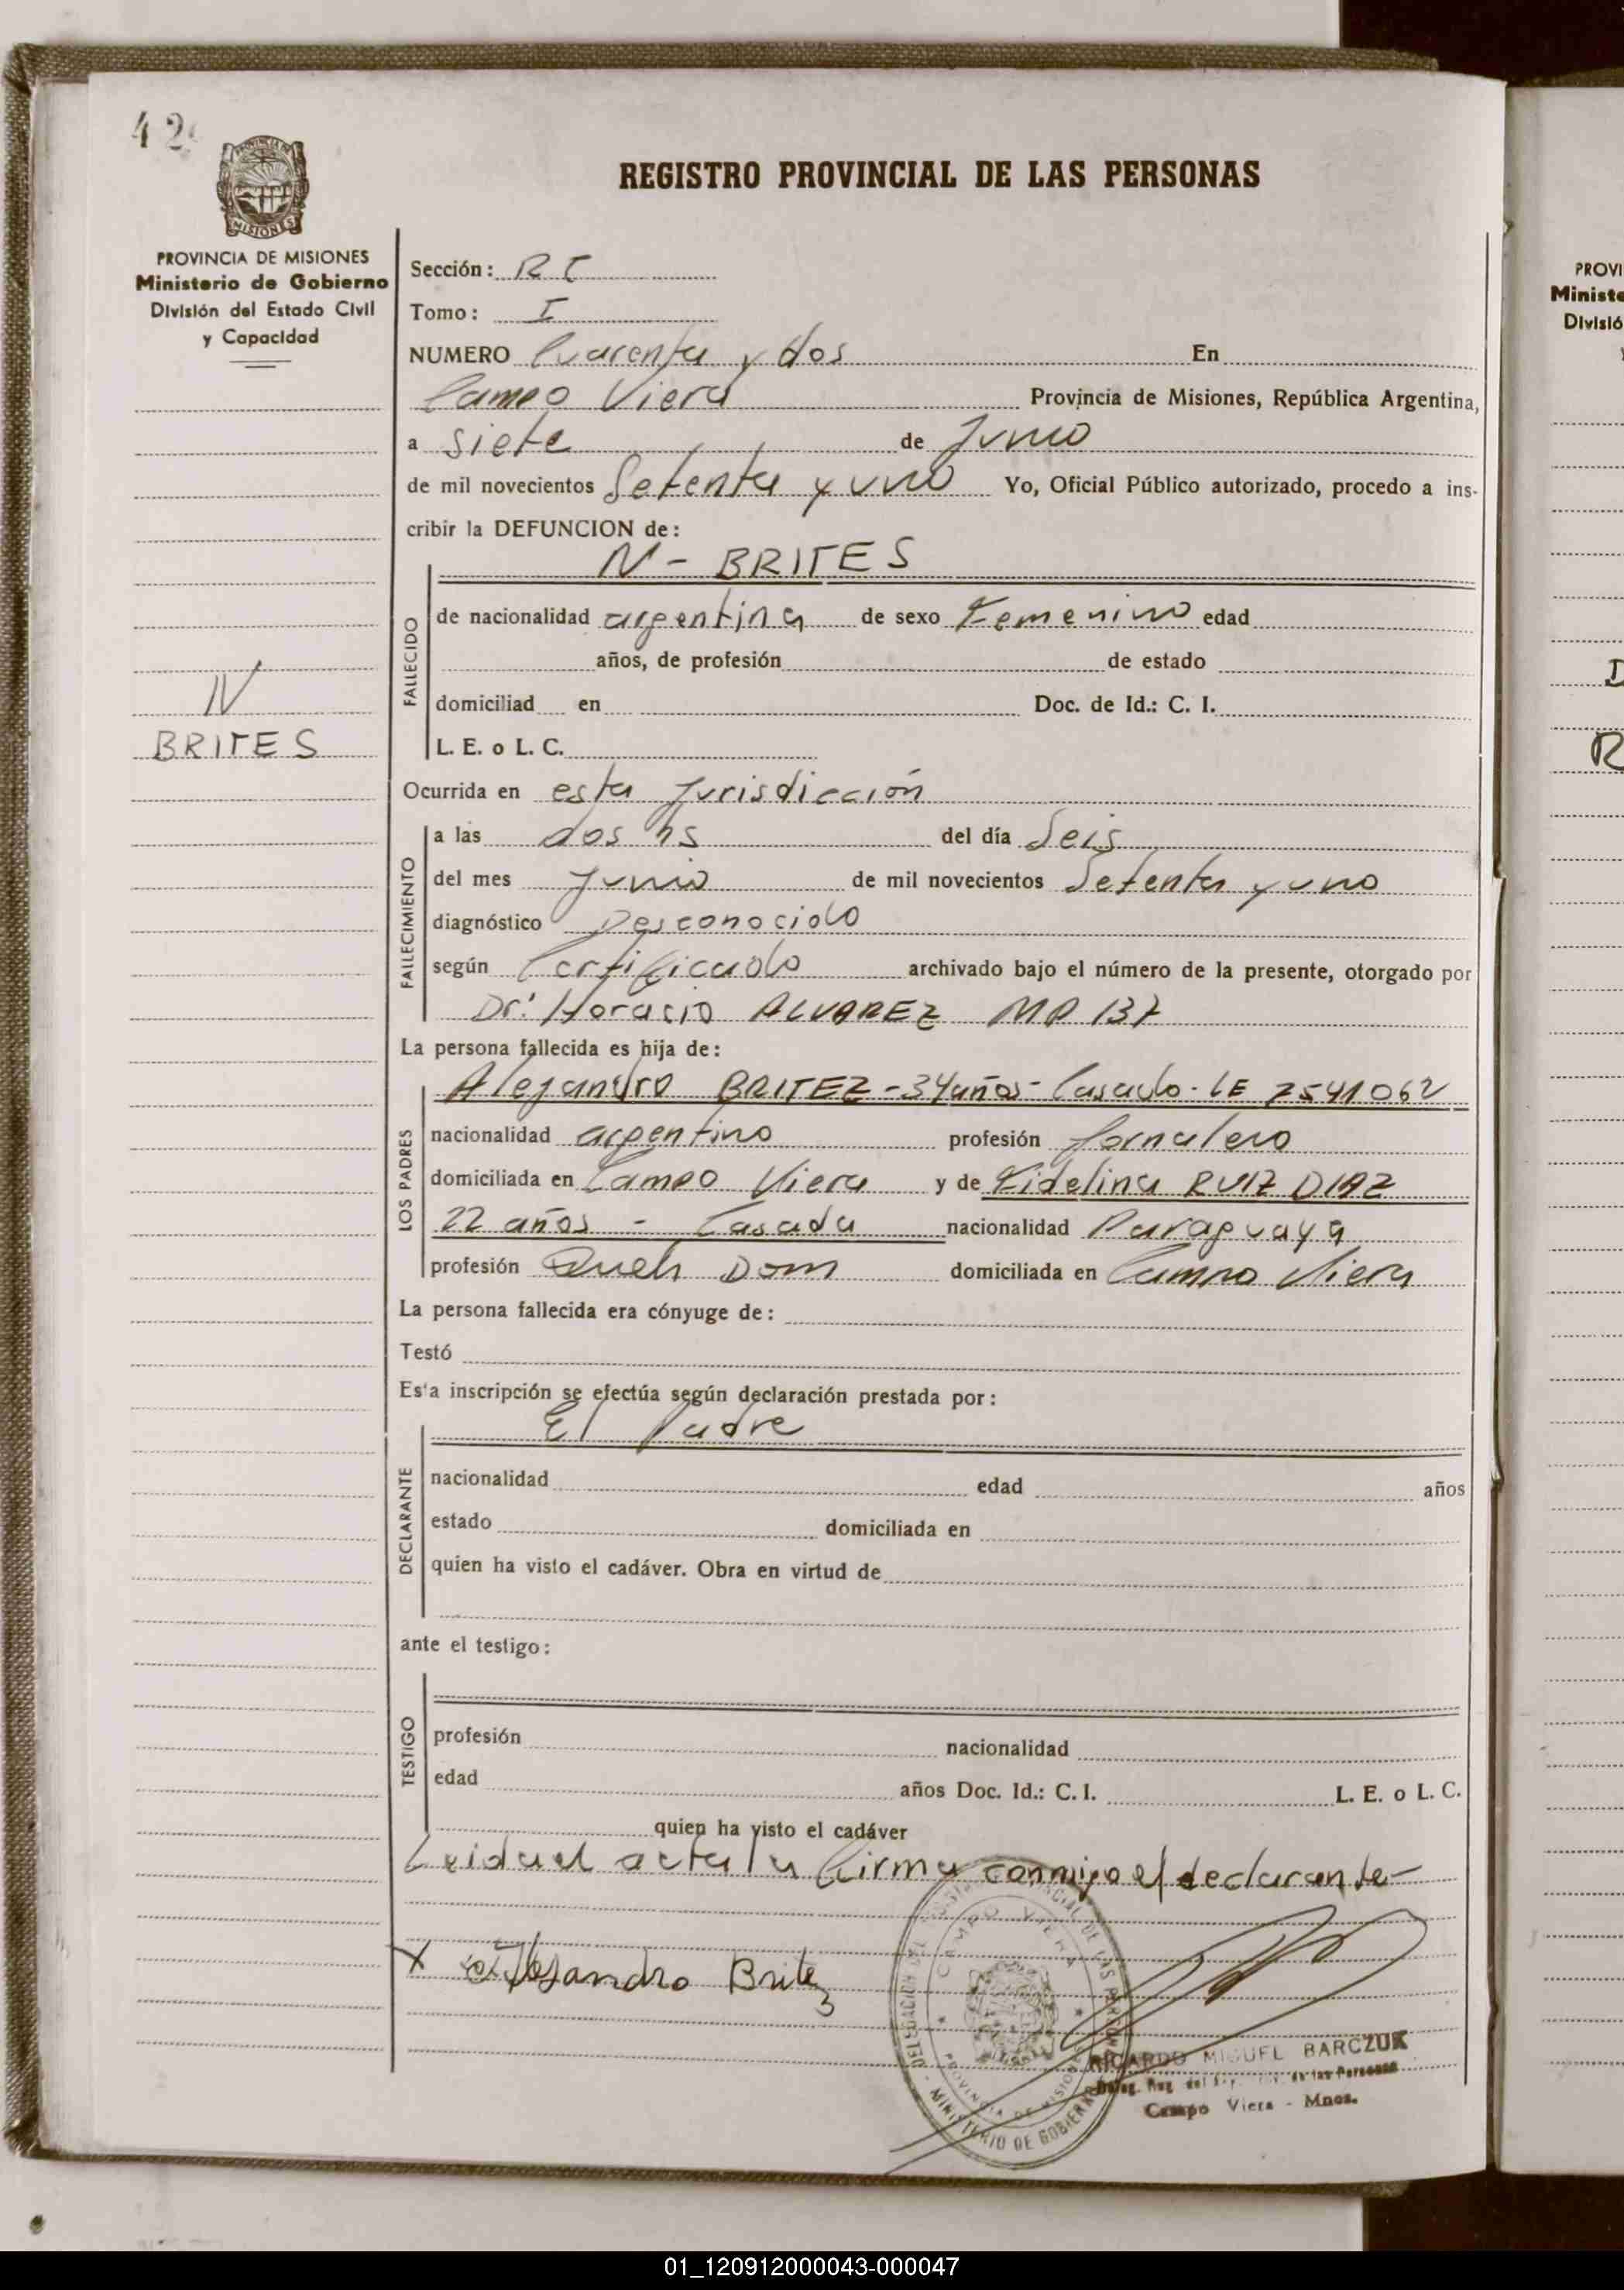 42
REGISTRO PROVINCIAL DE LAS PERSONAS
PROVINCIA DE MISIONES
MISIONES
PROVINCIA DE MISIONES
Ministerio de Gobierno
División del Estado Civil
y Capacidad
N
BRITES
Sección: RC
Tomo: I
NUMERO Cuarenta y dos En
Campo Viera Provincia de Misiones, República Argentina,
a siete de Junio
de mil novecientos Setenta y uno Yo, Oficial Público autorizado, procedo a ins-
cribir la DEFUNCION de:
N - BRITES
FALLECIDO
de nacionalidad argentina de sexo Femenino edad
años, de profesión de estado
domiciliad en Doc. de Id.: C. I.
L. E. o L. C.
Ocurrida en esta Jurisdicción
FALLECIMIENTO
a las dos hs del día Seis
del mes Junio de mil novecientos Setenta y uno
diagnóstico Desconocido
según Certificado archivado bajo el número de la presente, otorgado por
Dr. Horacio ALVAREZ MP 137
La persona fallecida es hija de:
LOS PADRES
Alejandro BRITEZ - 34 años - Casado - LE 7541062
nacionalidad argentino profesión Jornalero
domiciliada en Campo Viera y de Fidelina RUIZ DIAZ
22 años - Casada nacionalidad Paraguaya
profesión Queh Dom domiciliada en Campo Viera
La persona fallecida era cónyuge de:
Testó
Esta inscripción se efectúa según declaración prestada por:
El Padre
DECLARANTE
nacionalidad edad años
estado domiciliada en
quien ha visto el cadáver. Obra en virtud de
ante el testigo:
TESTIGO
profesión nacionalidad
edad años Doc. Id.: C. I. L. E. o L. C.
quien ha visto el cadáver
Leida el acta la firma conmigo el declarante-
X Alejandro Britez
CAMPO VIERA
PROVINCIA DE MISIONES
MINISTERIO DE GOBIERNO
RICARDO MIGUEL BARCZUK
de las Personas
Campo Viera - Mnes.
PROVI
Ministe
Divisió
D
R
01_120912000043-000047